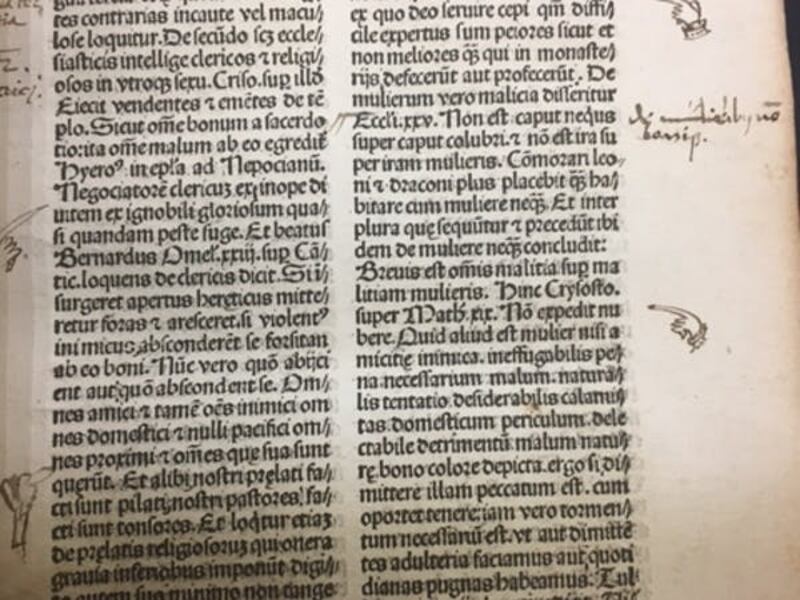 tes contrarias incaute vel macu⸗
lose loquitur. De secũdo scꝫ eccle⸗
siasticis intellige clericos ⁊ religi⸗
osos in vtroqꝫ sexu. Criso. sup illd̃
Eiecit vendentes ⁊ emẽtes de tẽ
plo. Sicut om̃e bonum a sacerdo
tio: ita omne malum ab eo egredit᷑
Hyero⁹ in epl̃a ad Nepocianũ.
Negociatorẽ clericuꝫ ex inope di
uitem ex ignobili gloriosum qua⸗
si quandam peste fuge. Et beatus
Bernardus Omel̃. xxiij. sup Cã⸗
tic. loquens de clericis dicit. Si ĩ⸗
surgeret apertus hereticus mitte⸗
retur foras ⁊ aresceret. si violent⁹
inimicus absconderẽt se forsitan
ab eo boni. Nũc vero quõ abijci
ent aut quõ abscondent se. Om⸗
nes amici ⁊ tamẽ oẽs inimici om⸗
nes domestici ⁊ nulli pacifici om⸗
nes proximi ⁊ om̃es que sua sunt
querũt. Et alibi nostri prelati fa⸗
cti sunt pilati, nostri pastores, fa⸗
cti sunt tonsores. Et loq̃tur etiaꝫ
de prelatis religiosoruꝫ qui onera
grauia inferiobus imponũt digi⸗
to autem suo minimo non tange
ex quo deo seruire cepi qm̃ diffi⸗
cile expertus sum peiores sicut et
non meliores q̃ꝫ qui in monaste⸗
rijs defecerũt aut profecerũt. De
mulierum vero malicia disseritur
Eccl̃i. xxv. Non est caput neqius
super caput colubri. ⁊ nõ est ira su
per iram mulieris. Cõmorari leo⸗
ni ⁊ draconi plus placebit q̃ꝫ ha⸗
bitare cum muliere neqꝫ. Et inter
plura que sequũtur ⁊ precedũt ibi
dem de muliere neqꝫ concludit:
Breuis est om̃is malitia sup ma
litiam mulieris. Hinc Crysosto.
super Math̃. xix. Nõ expedit nu
bere. Quid aliud est mulier nisi a
micitie inimica. ineffugabilis pe⸗
na necessarium malum. natura⸗
lis tentatio desiderabilis calami⸗
tas domesticum periculum. dele
ctabile detrimentũ malum natu⸗
re. bono colore depicta. ergo si di⸗
mittere illam peccatum est. cum
oportet tenere: iam vero tormen⸗
tum necessariũ est. vt aut dimittẽ
tes adulteria faciamus aut quoti
dianas pugnas habeamus: Tul⸗